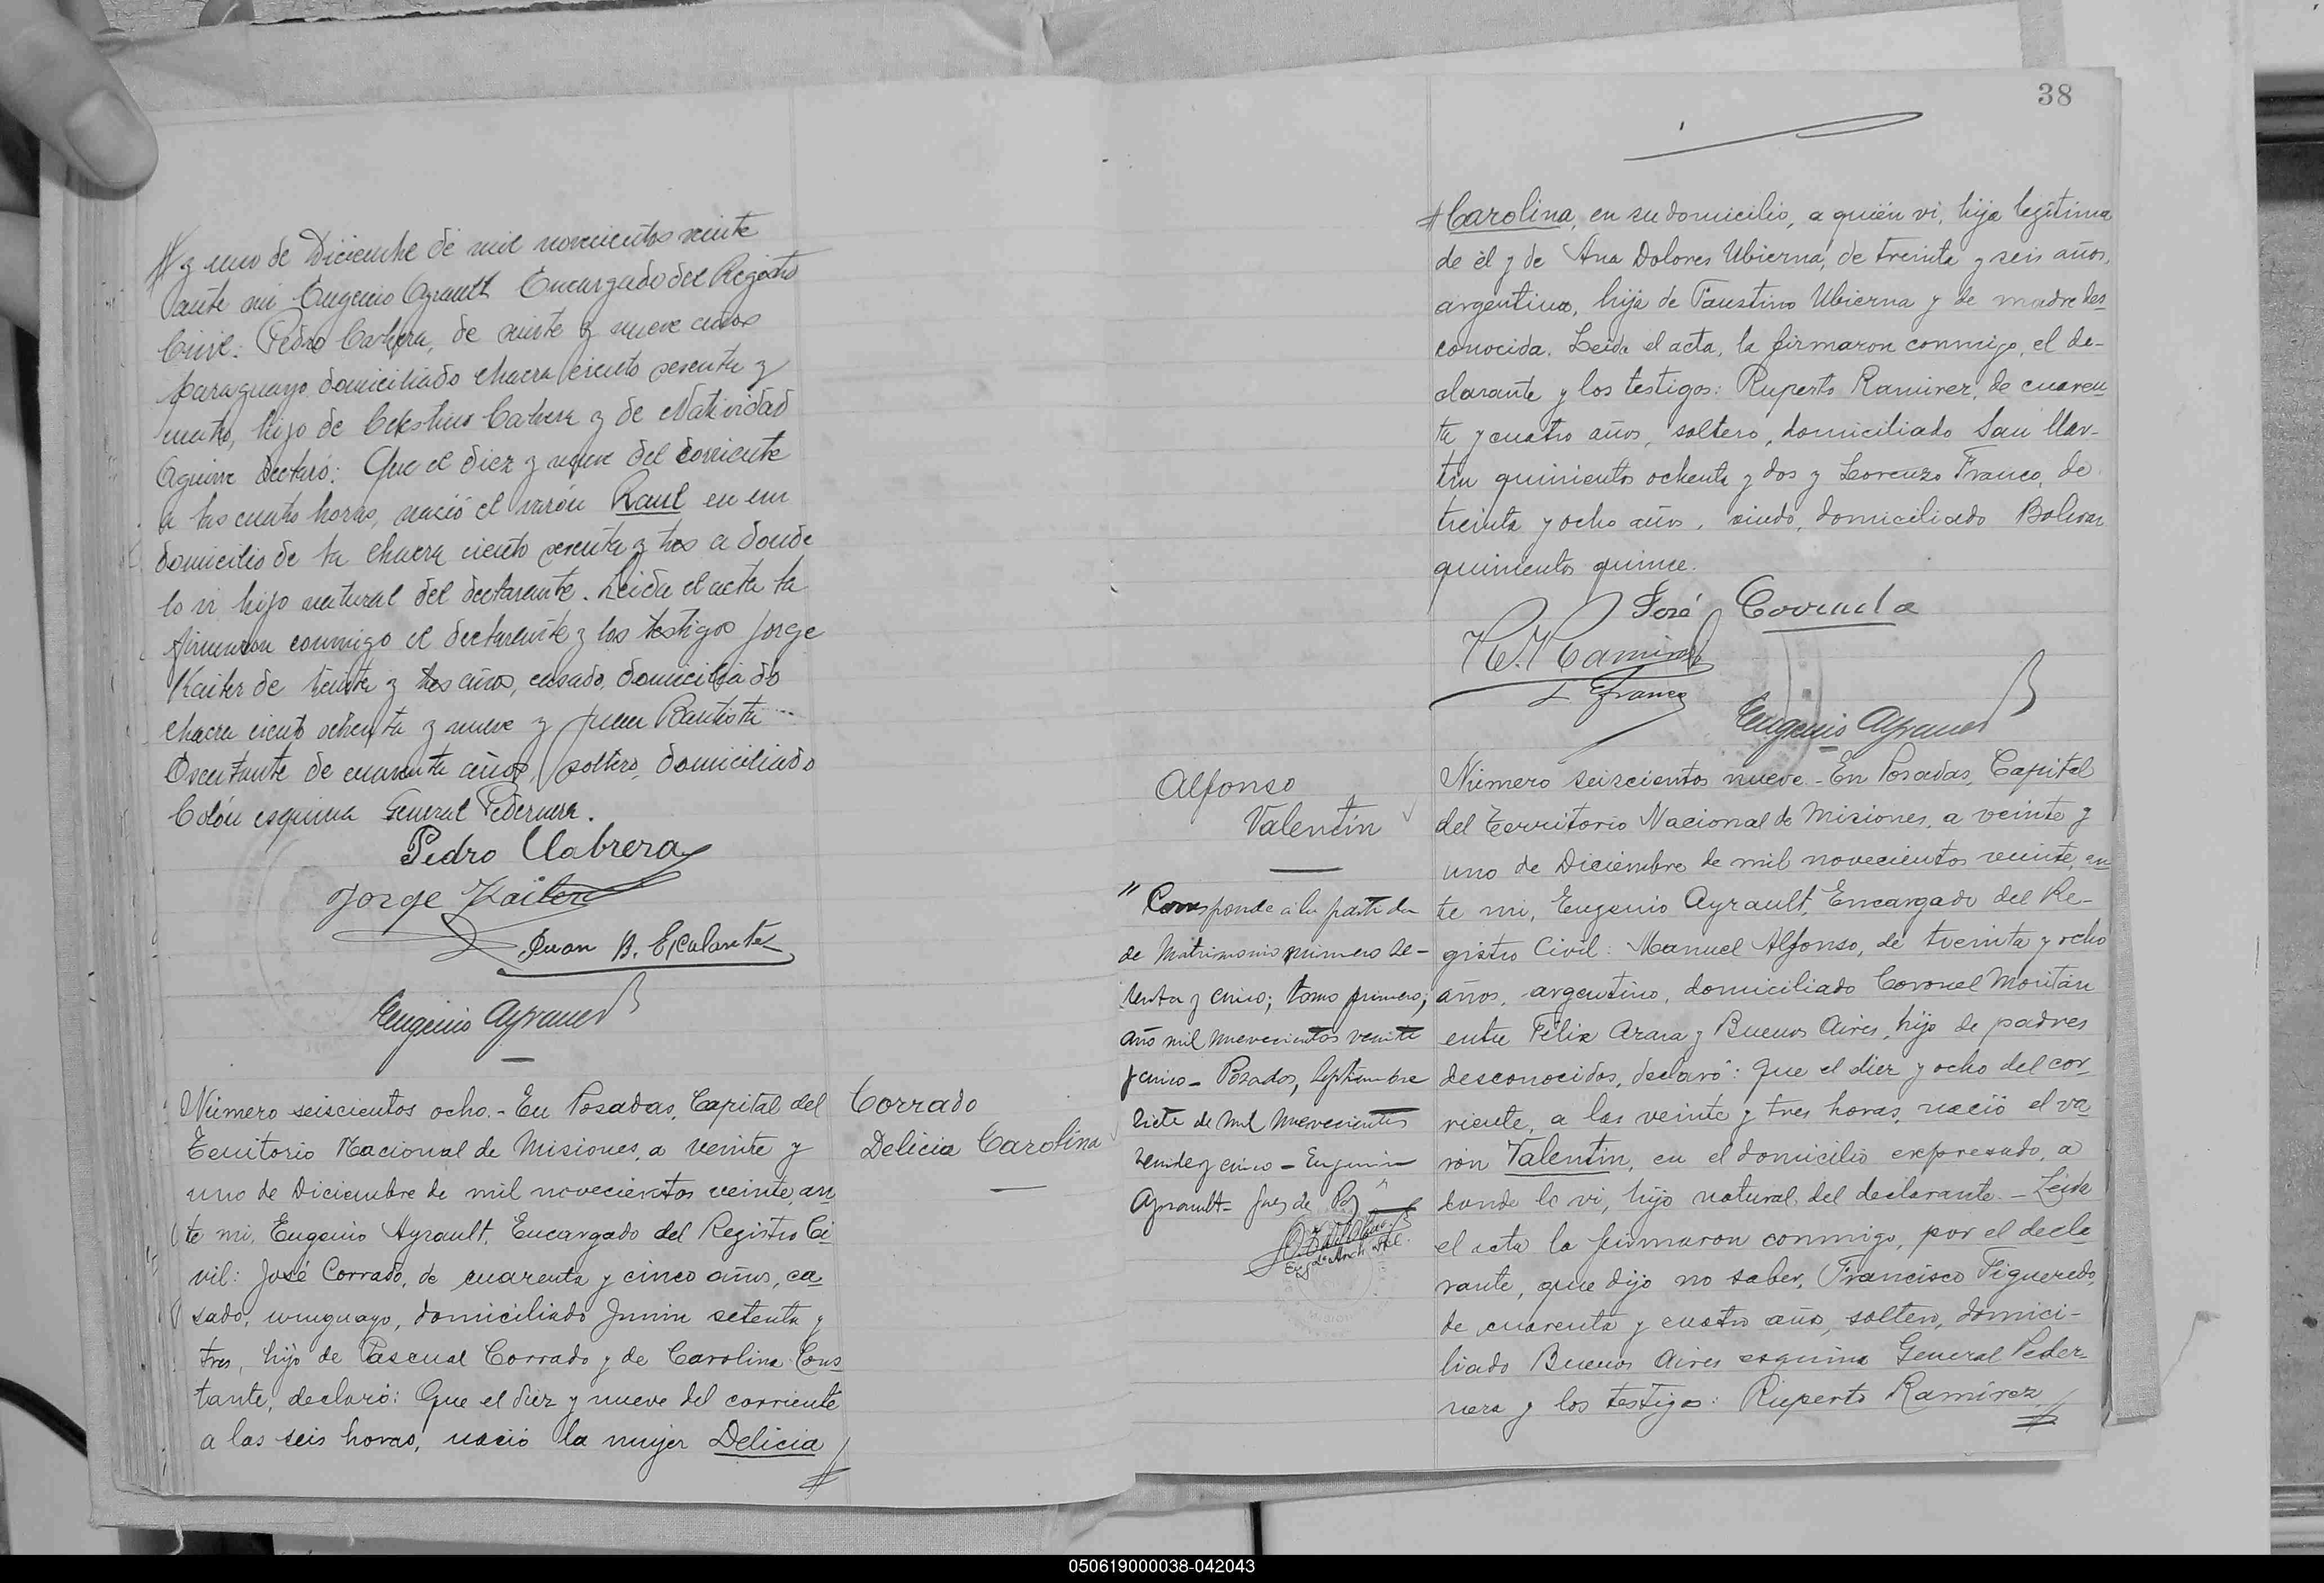 # y uno de Diciembre de mil novecientos veinte
ante mi Eugenio Ayrault Encargado del Registro
Civil: Pedro Cabrera, de veinte y nueve años
paraguayo domiciliado chacra ciento sesenta y
cuatro, hijo de Celestino Cabrera y de Natividad
Aguirre declaró: Que el diez y nueve del corriente
a las cuatro horas, nació el varón Raul en em
domicilio de la chacra ciento sesenta y tres a donde
lo vi hijo natural del declarante. Leida el acta la
firmaron conmigo el declarante y los testigos Jorge
Kaiter de treinta y tres años, casado, domiciliado
chacra ciento ochenta y nueve y Juan Bautista
Escalante de cuarenta años, soltero, domiciliado
Colón esquina General Pedernera.
Pedro Cabrera
Jorge Kaiter
Juan B. Escalante
Eugenio Ayrault
Número seiscientos ocho.- En Posadas, Capital del
Territorio Nacional de Misiones, a veinte y
uno de Diciembre de mil novecientos veinte, an
te mi, Eugenio Ayrault, Encargado del Registro Ci
vil: José Corrado, de cuarenta y cinco años, ca
sado, uruguayo, domiciliado Junin setenta y
tres, hijo de Pascual Corrado y de Carolina Cons
tante, declaró: Que el diez y nueve del corriente
a las seis horas, nació la mujer Delicia
#
Corrado
Delicia Carolina
38
# Carolina, en su domicilio, a quién vi, hija legítima
de él y de Ana Dolores Ubierna, de treinta y seis años,
argentina, hija de Faustino Ubierna y de madre des
conocida. Leida el acta, la firmaron conmigo, el de-
clarante y los testigos: Ruperto Ramirez, de cuaren
ta y cuatro años, soltero, domiciliado San Mar-
tin quinientos ochenta y dos y Lorenzo Franco, de
treinta y ocho años, viudo, domiciliado Bolivar
quinientos quince.
José Corrado
R. Ramirez
L Franco
Eugenio Ayrault
Alfonso
Valentín
"Corresponde a la partida
de Matrimonio número se-
tenta y cinco; tomo primero;
año mil novecientos veinte
y cinco - Posadas, Septiembre
siete de mil novecientos
veinte y cinco - Eugenio
Ayrault - Juez de Paz"
Número seiscientos nueve - En Posadas, Capital
del Territorio Nacional de Misiones, a veinte y
uno de Diciembre de mil novecientos veinte, an
te mi, Eugenio Ayrault, Encargado del Re-
gistro Civil: Manuel Alfonso, de treinta y ocho
años, argentino, domiciliado Coronel Moritán
entre Félix Azara y Buenos Aires, hijo de padres
desconocidos, declaró: Que el diez y ocho del cor
riente, a las veinte y tres horas, nació el va
rón Valentin, en el domicilio expresado, a
donde lo vi, hijo natural del declarante. - Leida
el acta la firmaron conmigo, por el decla
rante, que dijo no saber, Francisco Figueredo,
de cuarenta y cuatro años, soltero, domici-
liado Buenos Aires esquina General Peder-
nera y los testigos: Ruperto Ramirez
#
050619000038-042043